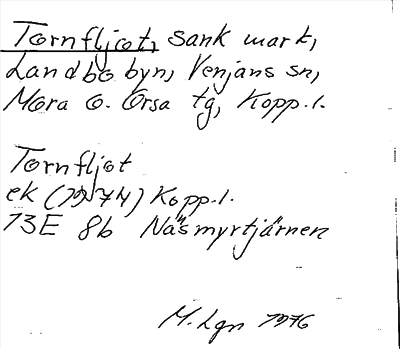 Tornfljot, sank mark,
Landbobyn, Venjans sn,
Mora o. Orsa tg, Kopp. l.
Tornfljot
ek (1974) Kopp. l.
13E 8b Näsmyrtjärnen
M. Lgn 1976